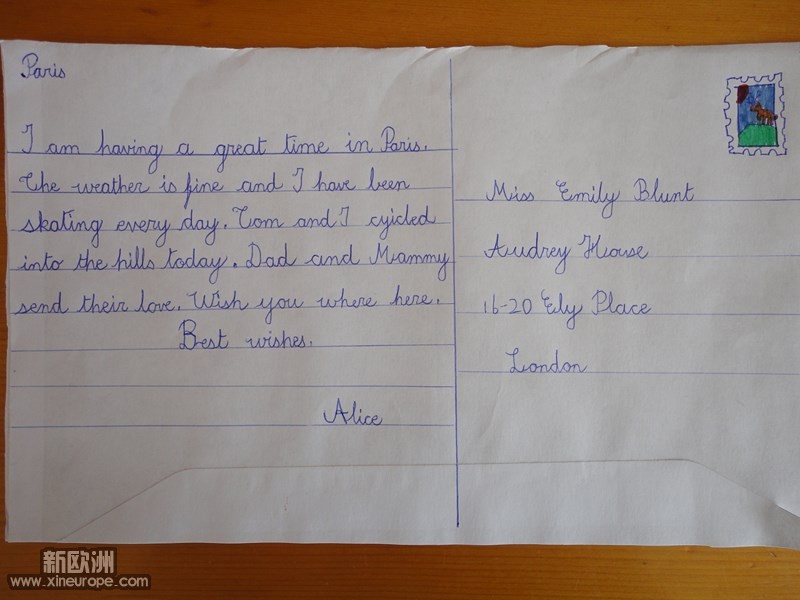 Paris
I am having a great time in Paris.
The weather is fine and I have been
skating every day. Tom and I cyicled
into the hills today. Dad and Mammy
send their love. Wish you where here.
Best wishes.
Alice
Miss Emily Blunt
Audrey House
16-20 Ely Place
London
新欧洲
www.xineurope.com